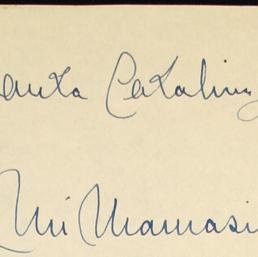 anta Catalina
Mi Mamasi